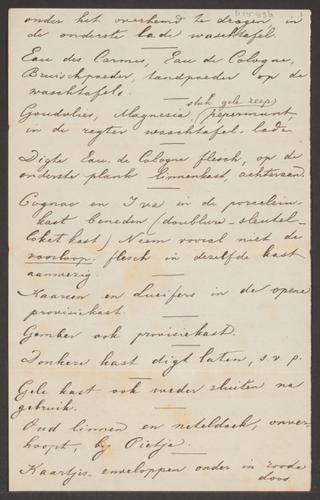 onder het overhemd te dragen, in
de onderste lade waschtafel.
Eau des Carmes, Eau de Cologne,
Bruischpoeder, tandpoeder op de
waschtafels.
stuk gele zeep
Goudvlies, Magnesia, pepermunt,
in de regter waschtafel-lade
Digte Eau de Cologne flesch, op de
onderste plank linnenkast, achteraan.
Cognac en Iva in de porcelein-
kast beneden (doublure-sleutel-
loket kast) Neem vooral niet de
voorloop-flesch in dezelfde kast
aanwezig
Kaarsen en Lucifers in de opene
provisiekast
Gember ook provisiekast.
Donkere kast digt laten, s.v.p.
Gele kast ook weder sluiten na
gebruik.
Oud linnen en neteldoek, onver-
hoopt, by Pietje.
Kaartjes-enveloppen onder in roode
doos